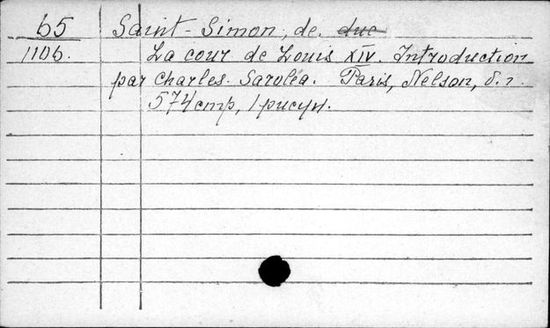 65 Saint-Simon, de. duc
1106. La cour de Louis XIV. Introduction
par Charles Saroléa. Paris, Nelson, s.n.
574 cmp, 1 рисун.